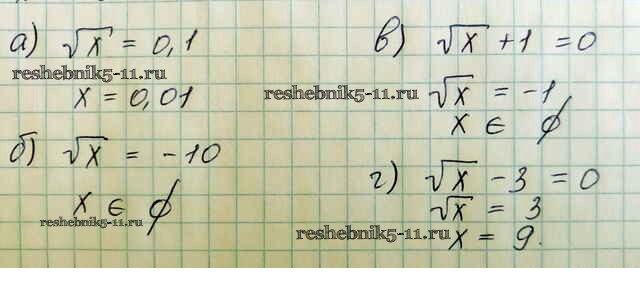 а) √x = 0,1
reshebnik5-11.ru
x = 0,01
б) √x = -10
x ∈ ∅
reshebnik5-11.ru
в) √x + 1 = 0
reshebnik5-11.ru
√x = -1
x ∈ ∅
г) √x - 3 = 0
√x = 3
reshebnik5-11.ru
x = 9.